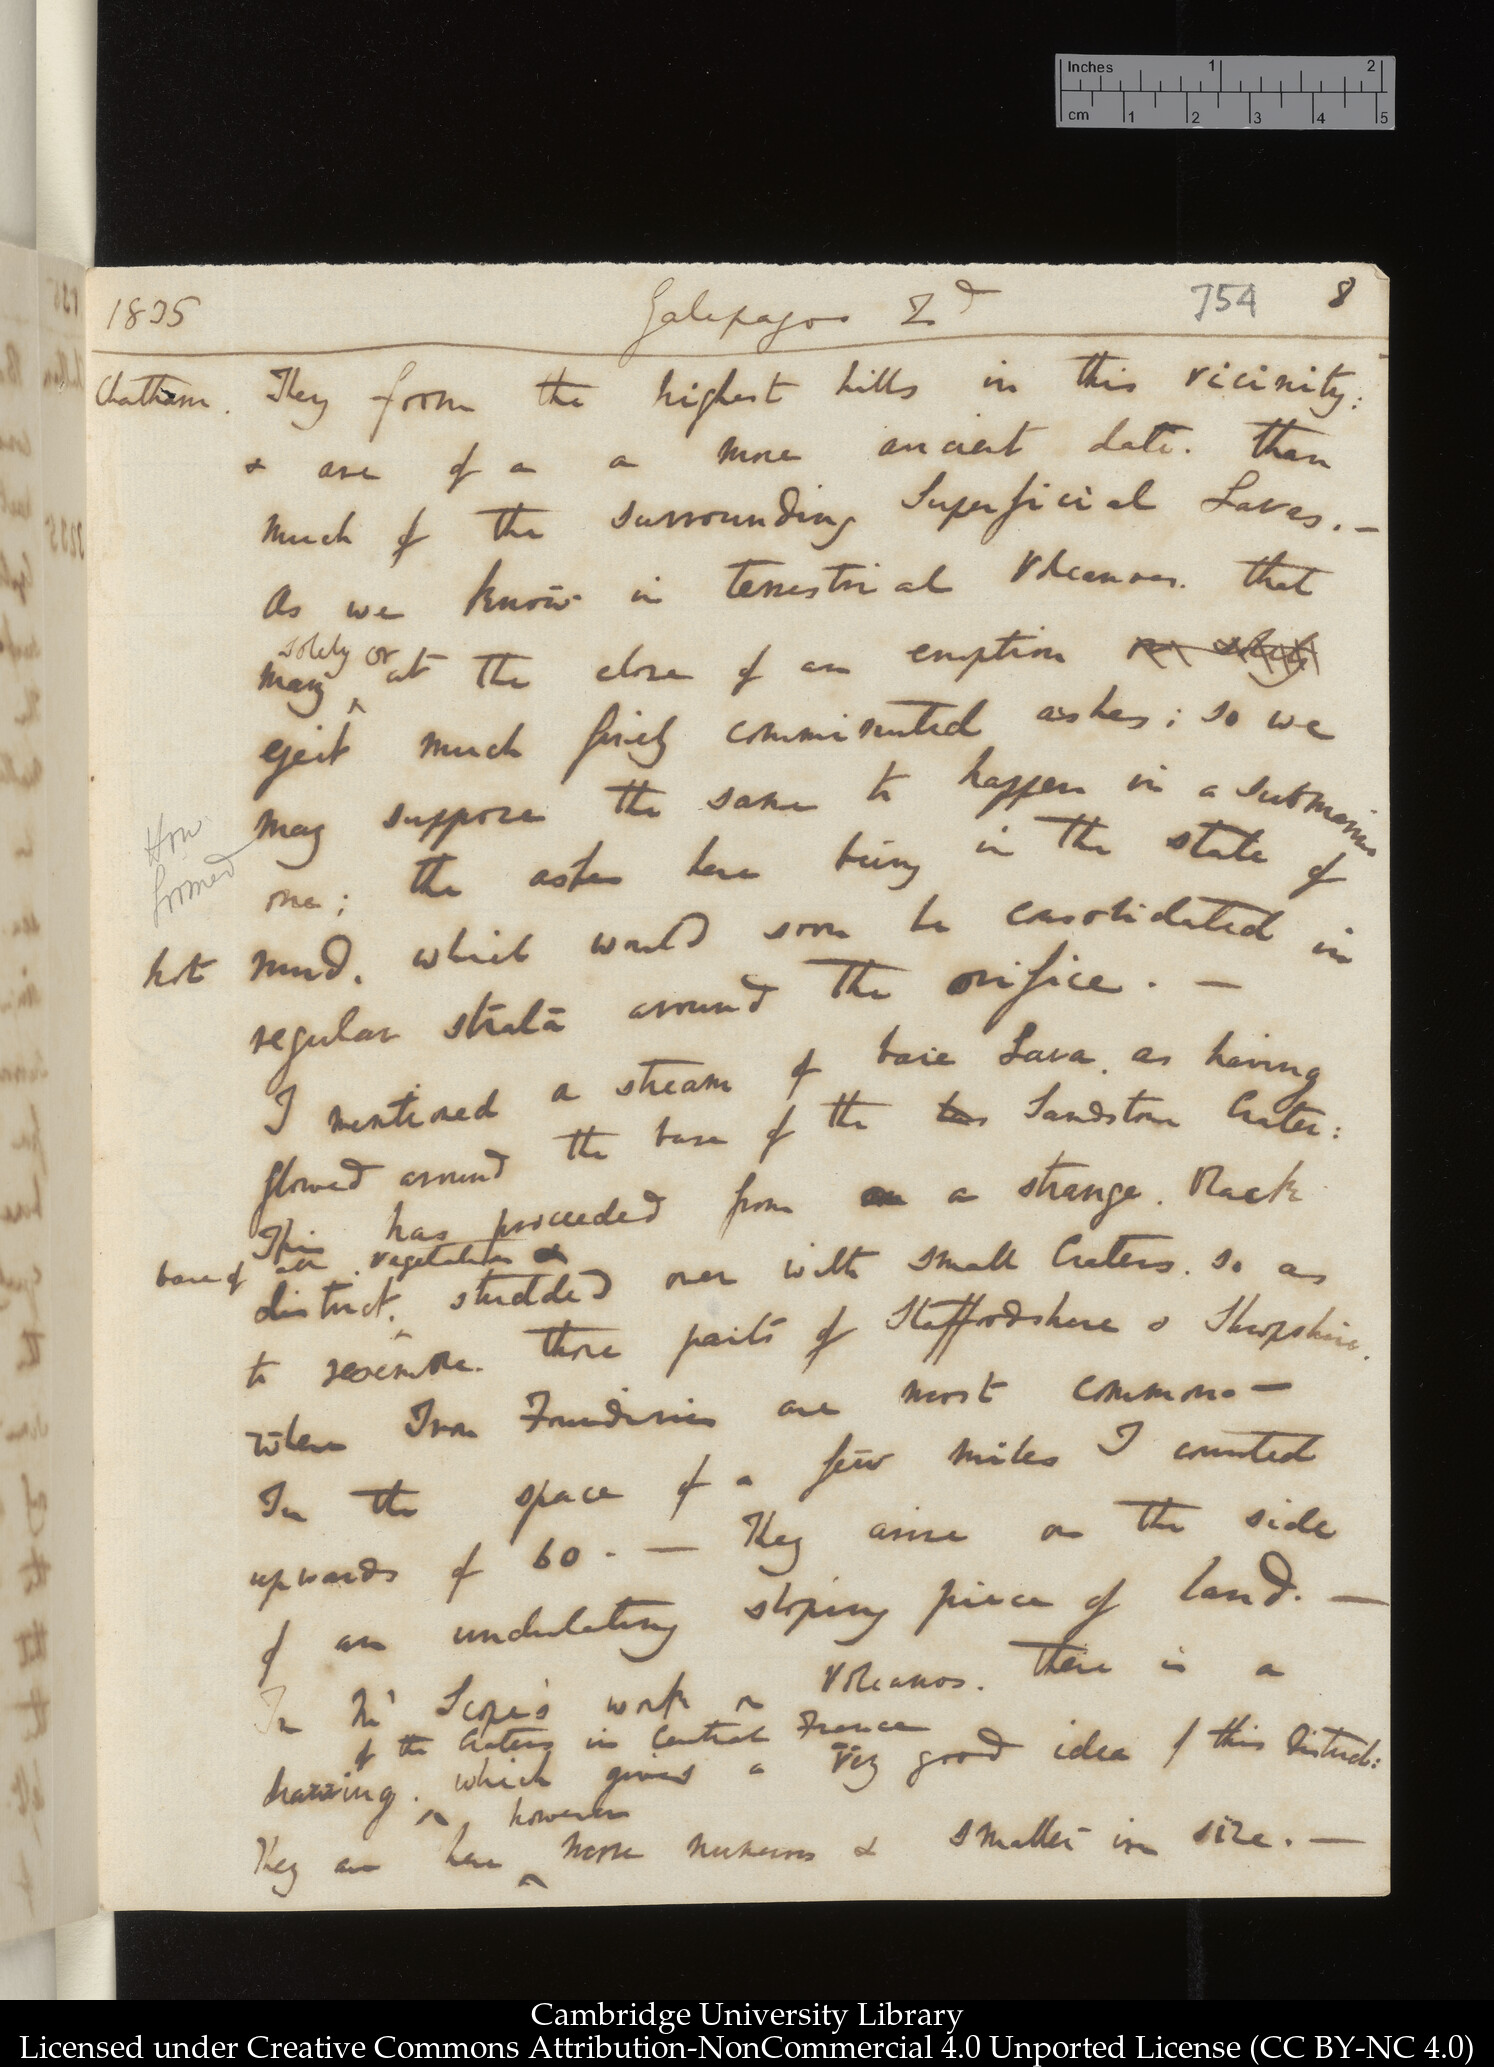 Inches 1 2
cm 1 2 3 4 5
1835 Galapagos Id 754 8
Chatham. They form the highest hills in this vicinity:
& are of a a more ancient date. than
much of the surrounding superficial Lavas. —
As we know in terrestrial Volcanoes. that
solely or
many at the close of an eruption
eject much finely comminuted ashes; so we
may suppose the same to happen in a submarine
How formed
one; the ashes here being in the state of
hot mud. which would soon be consolidated in
regular strata around the orifice. —
I mentioned a stream of bare Lava. as having
flowed around the base of the Sandstone Crater:
This has proceeded from a strange. Black
bare of all vegetation &
district. studded over with small Craters. so as
to resemble. those parts of Staffordshire & Shropshire.
where Iron Founderies are most common. —
In the space of a few miles I counted
upwards of 60. — They arise on the side
of an undulating sloping piece of land. —
In Mr Scope's work on Volcanos. there is a
of the Craters in Central France
drawing. which gives a very good idea of this district:
however
They are here more numerous & smaller in size. —
Cambridge University Library
Licensed under Creative Commons Attribution-NonCommercial 4.0 Unported License (CC BY-NC 4.0)